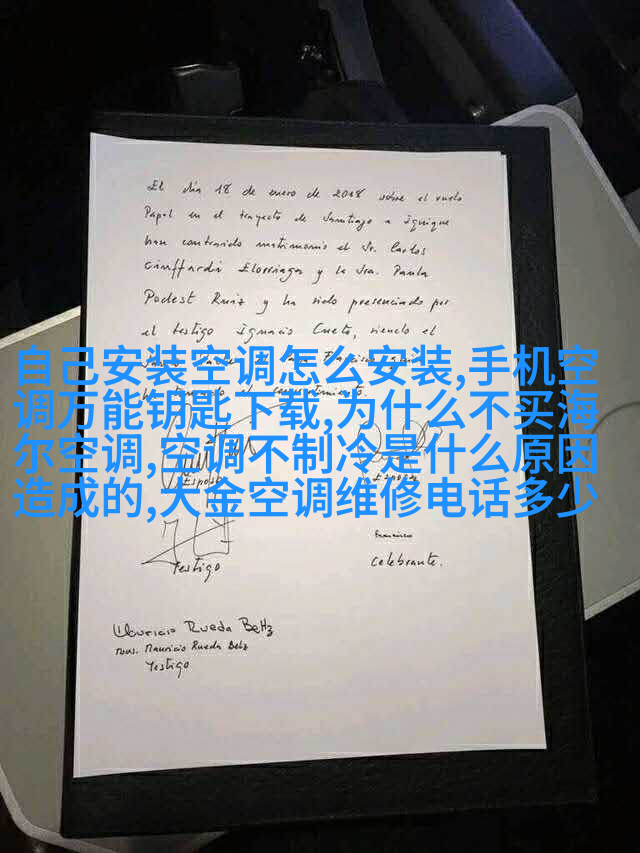 El día 18 de enero de 2018 sobre el vuelo
Papal en el trayecto de Santiago a Iquique
han contraido matrimonio el Sr. Carlos
Ciuffardi Elorriaga y la Sra. Paula
Podest Ruiz y ha sido presenciado por
el testigo Ignacio Cueto, siendo el
自己安装空调怎么安装,手机空
调万能钥匙下载,为什么不买海
尔空调,空调不制冷是什么原因
造成的,大金空调维修电话多少
Esposo
Esposa
Testigo
Franciscus
Celebrante.
Mauricio Rueda Beltz
Mons. Mauricio Rueda Beltz
Testigo